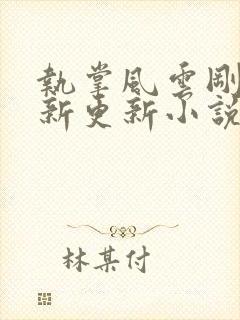 執掌風雲剛
新更新小說
林某付